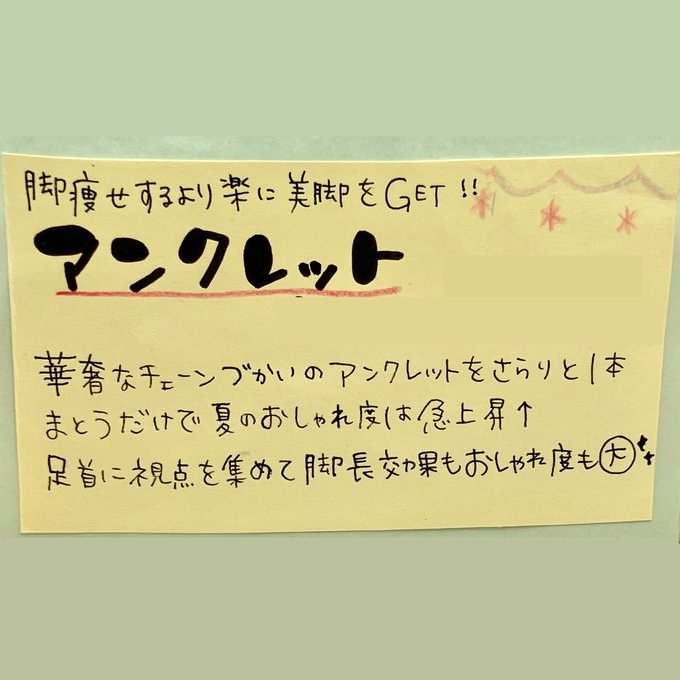 脚痩せするより楽に美脚をGET!!
アンクレット
華奢なチェーンづかいのアンクレットをさらりと1本
まとうだけで夏のおしゃれ度は急上昇↑
足首に視点を集めて脚長効果もおしゃれ度も大